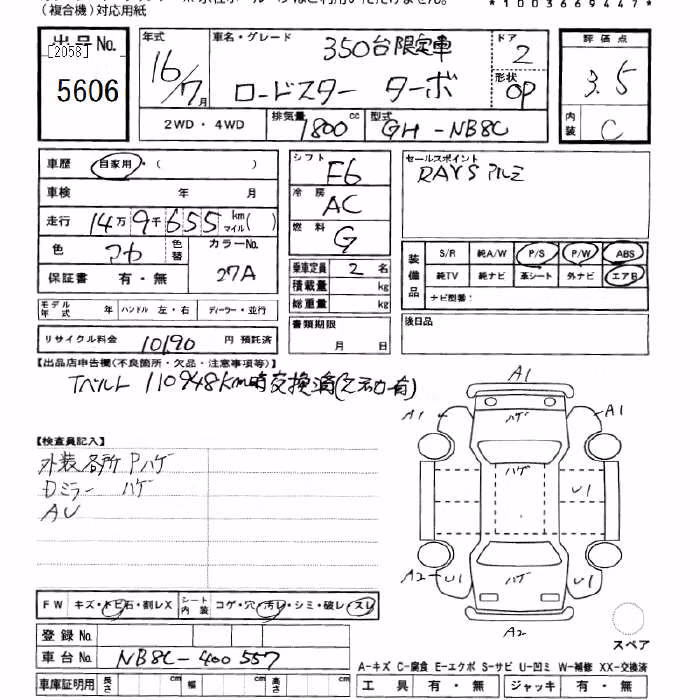 (複合機)対応用紙
*1003669447*
出品No.
[2058]
5606
年式 16/7月
車名・グレード 350台限定車
ロードスター ターボ
ドア 2
形状 OP
評価点 3.5
内装 C
2WD・4WD
排気量 1800 cc
型式 GH-NB8C
車歴 自家用・( )
車検 年 月
走行 14万9千655 km マイル( )
色 色替
カラーNo. 27A
保証書 有・無
シフト F6
冷房 AC
燃料 G
乗車定員 2 名
積載量 kg
総重量 kg
書類期限 月 日
セールスポイント
RAYSアルミ
装備品 S/R 純A/W P/S P/W ABS
純TV 純ナビ 革シート 外ナビ エアB
ナビ型番:
後日品
モデル年式 年 ハンドル 左・右 ディーラー・並行
リサイクル料金 10190 円 預託済
【出品店申告欄(不良箇所・欠品・注意事項等)】
Tベルト 110948km時交換済
【検査員記入】
外装各所Pハゲ
Dミラー ハゲ
AU
A1
A1 ハゲ A1
ハゲ
U1
A2 U1 ハゲ U1
A2
スペア
FW キズ・トビ石・割レX シート内装 コゲ・穴・汚レ・シミ・破レ・スレ
登録No.
車台No. NB8C-400557
車庫証明用 長さ cm 幅 cm 高さ cm
A-キズ C-腐食 E-エクボ S-サビ U-凹ミ W-補修 XX-交換済
工具 有・無 ジャッキ 有・無